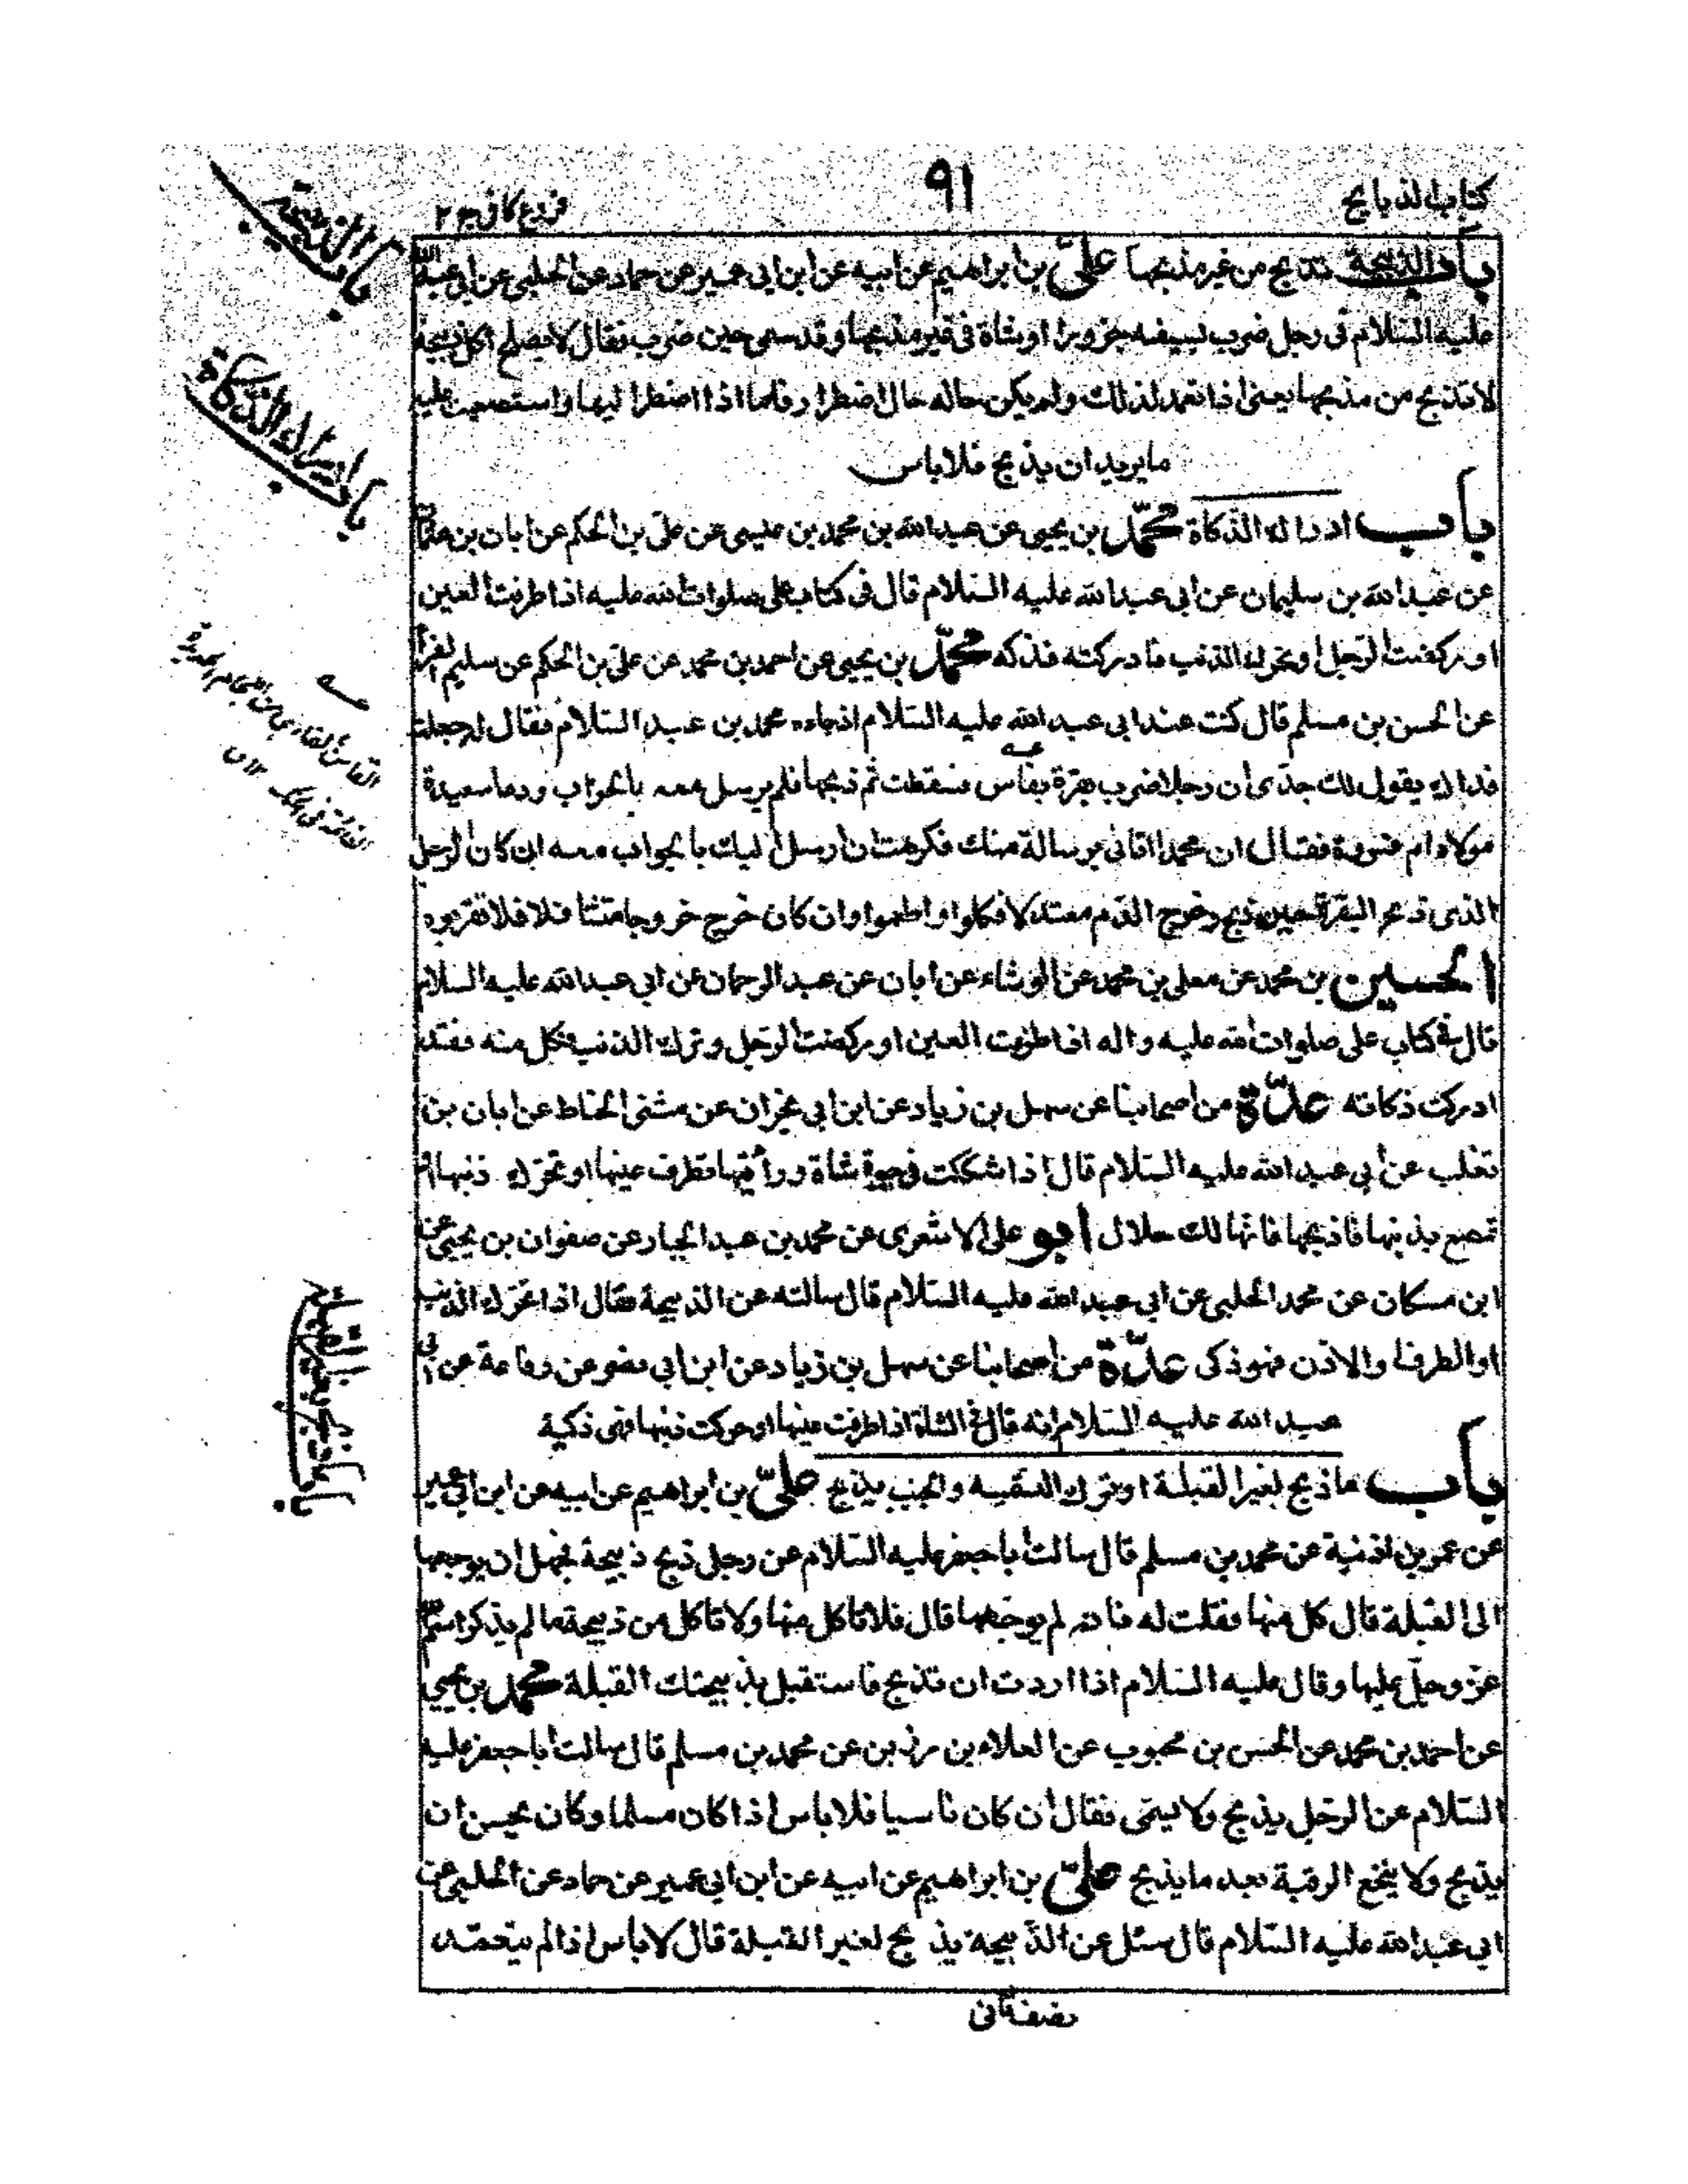 كتاب الذبايح
٩١
فروع كافى ج ٢
باب الذبيحة تذبح من غير مذبحها علىّ بن ابراهيم عن ابيه عن ابن ابى عمير عن حماد عن الحلبى عن ابى عبد الله
عليه السّلام فى رجل ضرب بسيفه جزورا اوشاة فى غير مذبحها وقد سمى حين ضرب فقال لا يصلح اكل ذبيحة
لا تذبح من مذبحها يعنى اذا تعمد لذلك ولم يكن حاله حال اضطرار فاما اذا اضطر اليها واستصعبت عليه
ما يريد ان يذبح فلا باس
باب ادراك الذّكاة محمّد بن يحيى عن عبدالله بن محمد بن عيسى عن علىّ بن الحكم عن ابان بن عثمان
عن عبدالله بن سليمان عن ابى عبدالله عليه السّلام قال فى كتاب على صلوات الله عليه اذا طرفت العين
او ركضت الرّجل او تحرك الذنب فادركته فذكه محمّد بن يحيى عن احمد بن محمد عن علىّ بن الحكم عن سليم الفرّا
عن الحسن بن مسلم قال كنت عند ابى عبدالله عليه السّلام اذجاءه محمد بن عبد السّلام فقال له جعلت
فداك يقول لك جدّى ان رجلا ضرب بقرة بفاس فسقطت ثمّ ذبحها فلم يرسل معه بالجواب ودعا سعيدة
مولاة ام فروة فقال ان محمدا اتانى برسالة منك فكرهت ان ارسل اليك بالجواب معه ان كان الرّجل
الذى ذبح البقرة حين ذبح خرج الدّم معتدلا فكلوا واطعموا وان كان خرج خروجا متثاقلا فلا تقربوه
الحسين بن محمد عن معلى بن محمد عن الوشاء عن ابان عن عبد الرحمان عن ابى عبدالله عليه السلام
قال فى كتاب على صلوات الله عليه واله اذا طرفت العين او ركضت الرّجل وتحرك الذنب فكل منه فقد
ادركت ذكاته علّة من اصحابنا عن سهل بن زياد عن ابن ابى نجران عن مثنى الحناط عن ابان بن
تغلب عن ابى عبدالله عليه السّلام قال اذا شككت فى حيوة شاة ورأيتها تطرف عينها او تحرك ذنبها او
تمصع بذنبها فاذبحها فانها لك حلال ابو على الاشعرى عن محمد بن عبد الجبار عن صفوان بن يحيى عن
ابن مسكان عن محمد الحلبى عن ابى عبدالله عليه السّلام قال سالته عن الذبيحة فقال اذا تحرّك الذنب
او الطرف او الاذن فهو ذكى عدّة من اصحابنا عن سهل بن زياد عن ابن ابى عن رفاعة عن ابى
عبدالله عليه السّلام انه قال فى الشاة اذا طرفت عينها او حركت ذنبها فهى ذكية
باب ما ذبح لغير القبلة او ترك التسمية والجنب يذبح علىّ بن ابراهيم عن ابيه عن ابن ابى عمير
عن عمر بن اذنية عن محمد بن مسلم قال سالت ابا جعفر عليه السّلام عن رجل ذبح ذبيحة فجهل ان يوجهها
الى القبلة قال كل منها فقلت له فانه لم يوجهها قال فلا تاكل منها ولا تاكل من ذبيحة ما لم يذكر اسم الله
عزّ وجلّ عليها وقال عليه السّلام اذا اردت ان تذبح فاستقبل بذبيحتك القبلة محمّد بن يحيى
عن احمد بن محمد عن الحسن بن محبوب عن العلاء بن رزين عن محمد بن مسلم قال سالت ابا جعفر عليه
السّلام عن الرّجل يذبح ولا يسمّى فقال ان كان ناسيا فلا باس اذا كان مسلما وكان يحسن ان
يذبح ولا ينخع الرقبة بعد ما يذبح علىّ بن ابراهيم عن ابيه عن ابن ابى عمير عن حماد عن الحلبى عن
ابى عبدالله عليه السّلام قال سئل عن الذّبيحة يذبح لغير القبلة قال لا باس اذا لم يتعمّد
باب الذبيحة
باب ادراك الذكاة
باب ما ذبح لغير القبلة